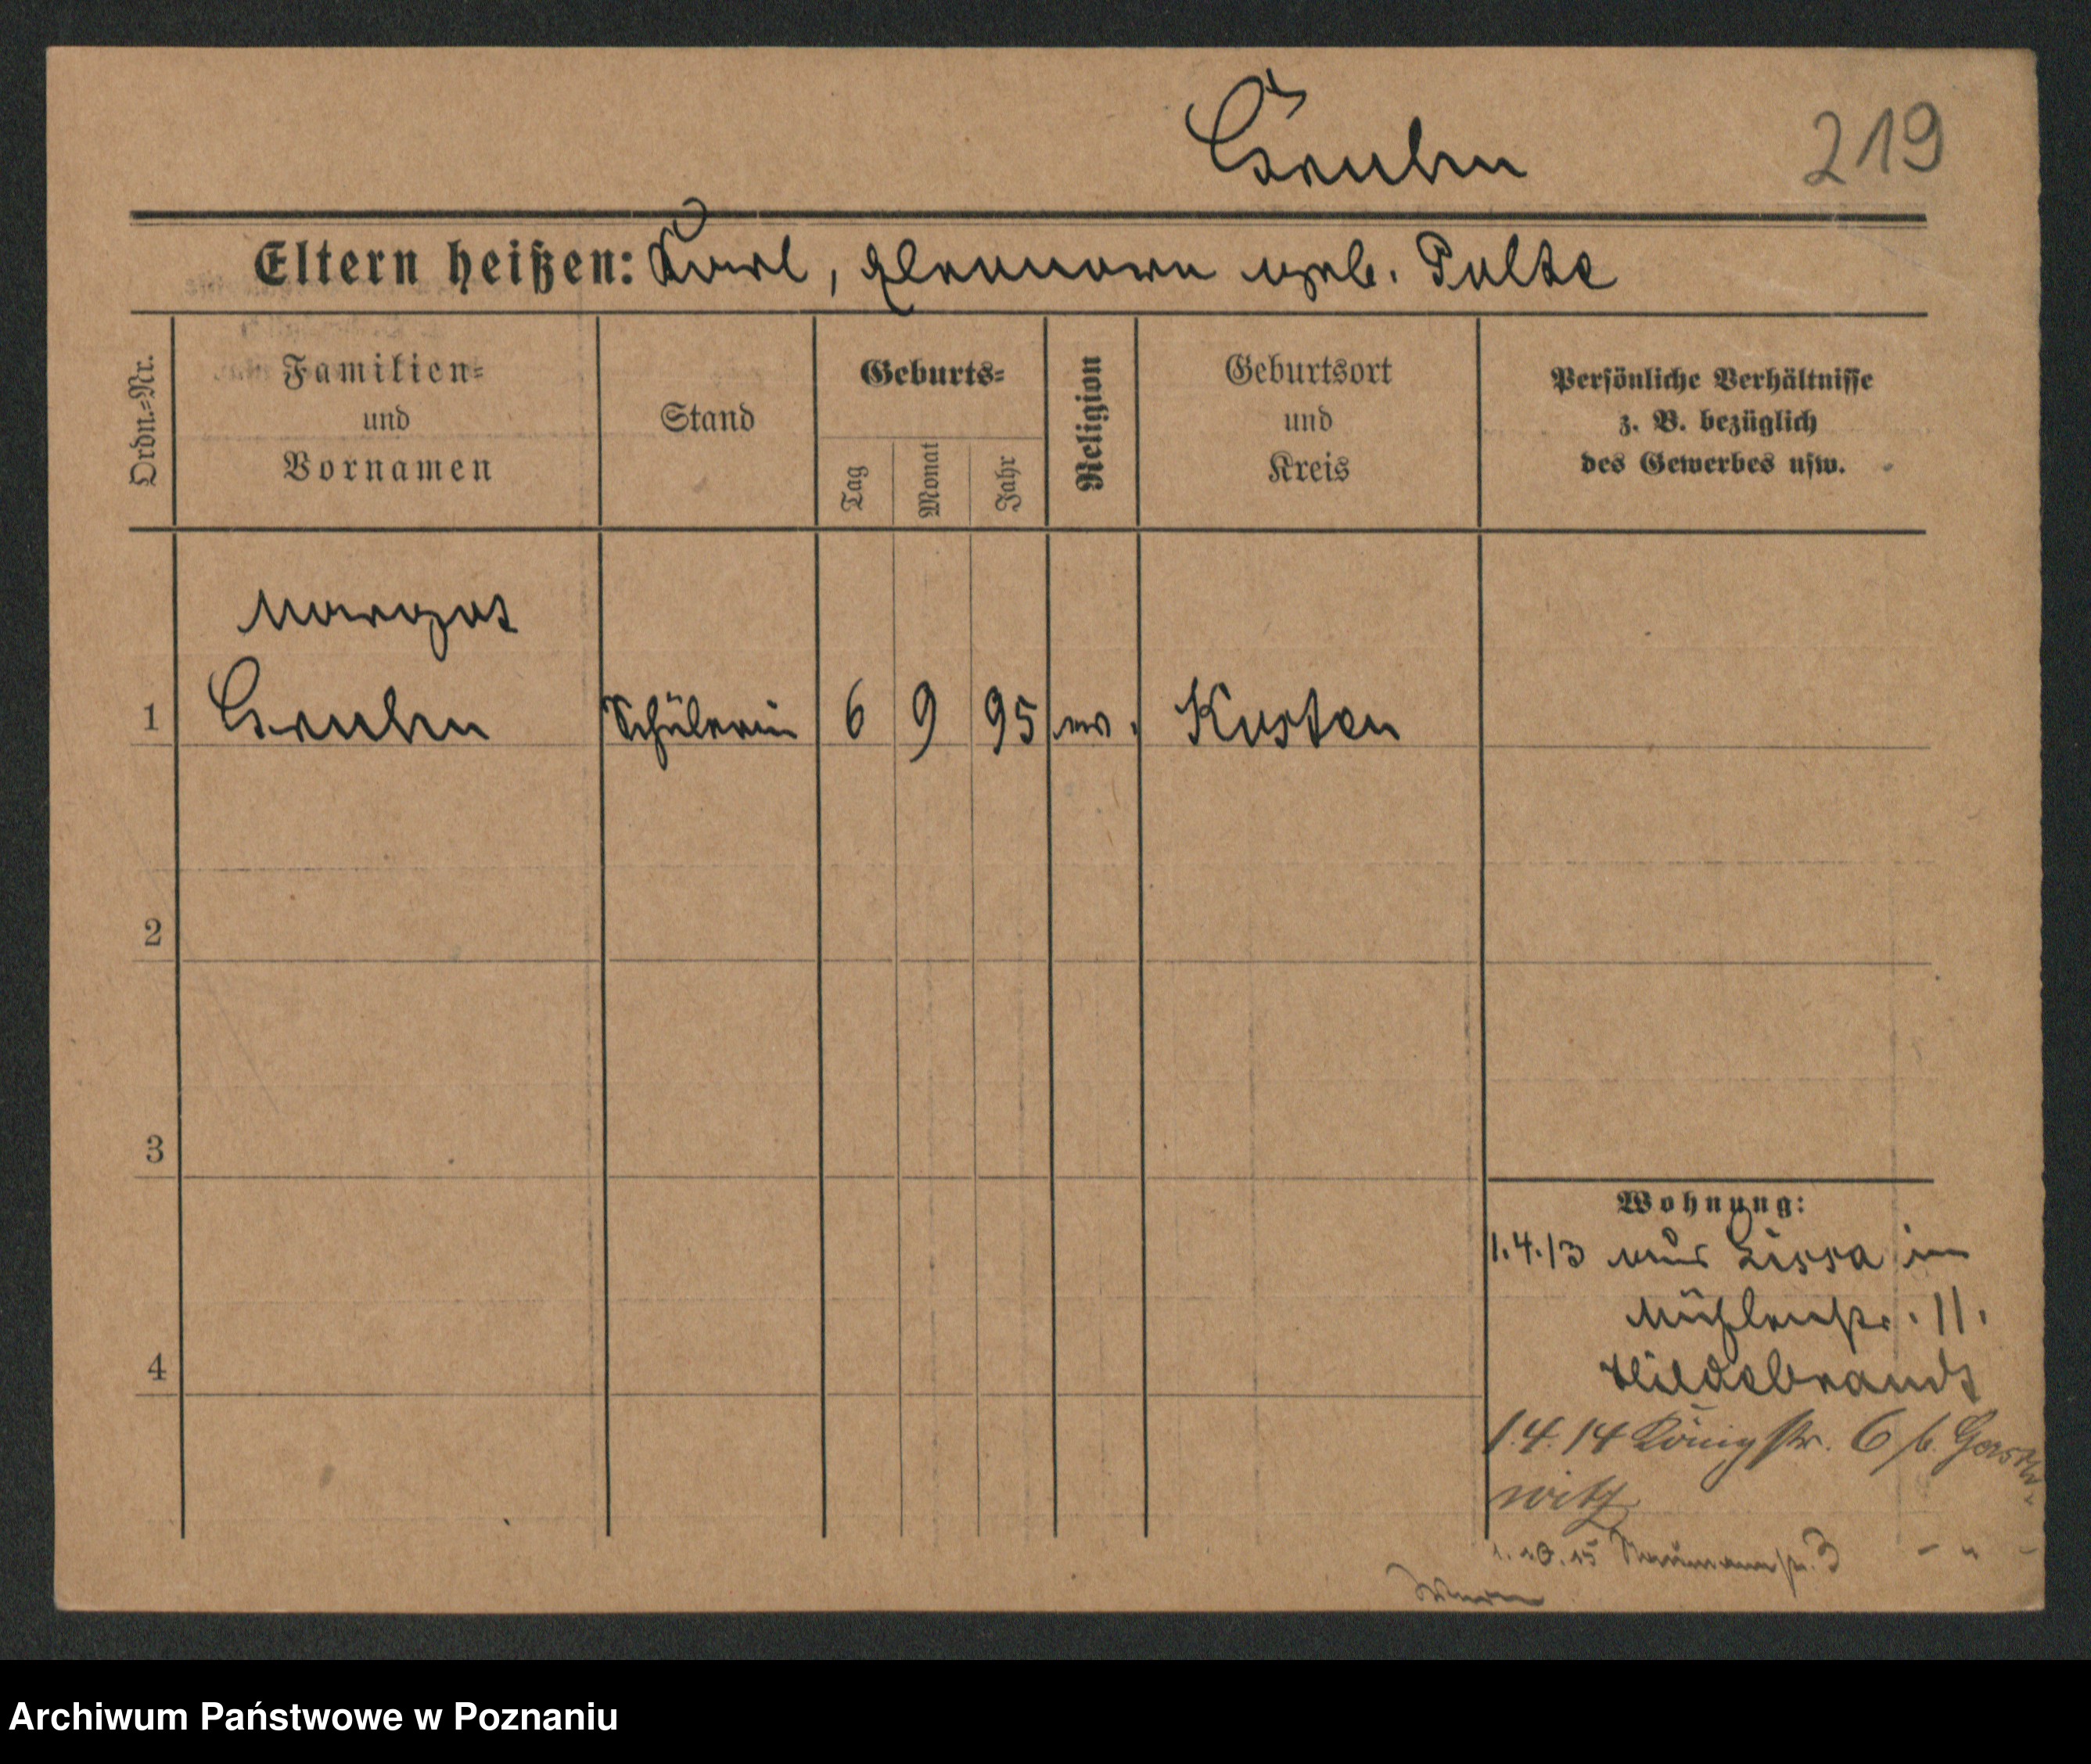 Gruhn
219
Eltern heißen: Karl, Eleonore geb. Polte
Ordn.-Nr.
Familien-
und
Vornamen
Stand
Geburts-
Tag
Monat
Jahr
Religion
Geburtsort
und
Kreis
Persönliche Verhältnisse
z. B. bezüglich
des Gewerbes usw.
Margot
1 Gruhn Schülerin 6 9 95 ev. Kosten
2
3
4
Wohnung:
1.4.13 aus Lissa in
Mühlenstr. 11.
Hildebrandt
1.4.14 Königstr. 6 b.
witz
1.10.15 Naumannstr. 3 - " -
Archiwum Państwowe w Poznaniu